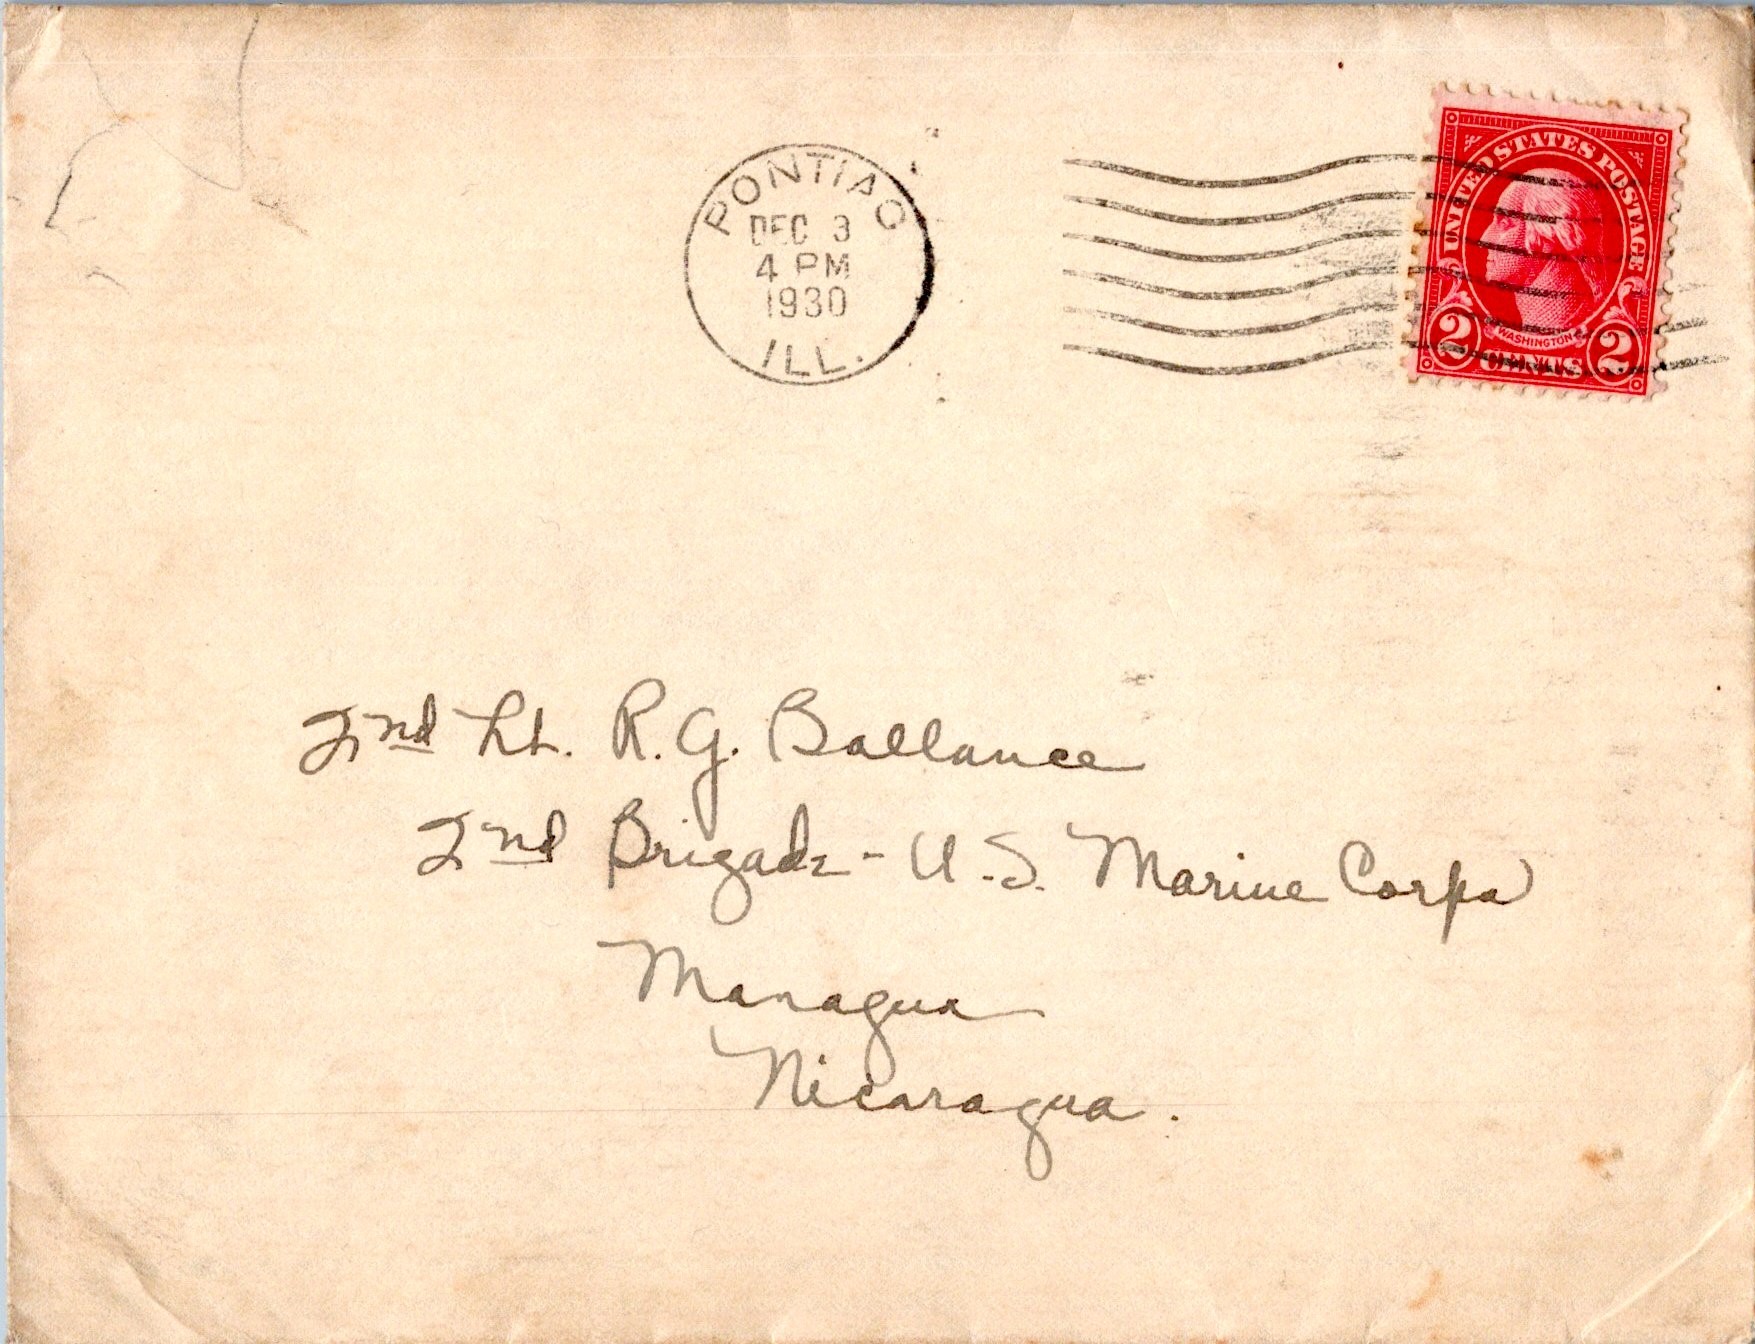 PONTIAC
DEC 3
4 PM
1930
ILL.
UNITED STATES POSTAGE
WASHINGTON
2 CENTS 2
2nd Lt. R. G. Ballance
2nd Brigade - U.S. Marine Corps
Managua
Nicaragua.